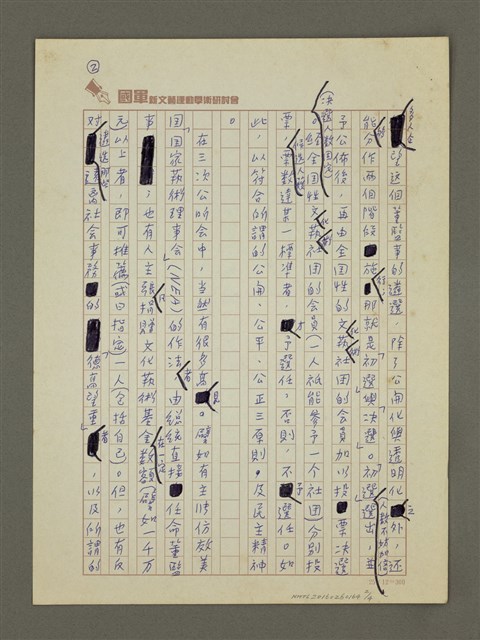 ②
國軍新文藝運動學術研討會
多人合
望這個董監事的遴選,除了公開化與透明化之外,還
能分作兩個階段施行:那就是「初選與決選」。初選選出,並
(人數不妨加倍)
予公佈後,再由全國性的文化藝術社團的會員加以投票決選
(決選人數固定)
。全國性文化藝術社團的會員(一人祇能參予一個社團)分別投
票,票數達某一標準者,才予選任,否則,不予選任。如
候選人數
此,以符合所謂的公開、公平、公正三原則。及民主精神
。
在三次公听會中,當然有很多高見。譬如有主張仿效美
國「國家藝術理事會」(NEA)的作法者,由總統直接任命董監
事,也有人主張捐贈文化藝術基金在一定數額(譬如一千万
元以上者,即可推薦(或曰指定)一人(包括自己)。但,也有反
对遴選那些社会事務的「德高望重」者,以及所謂的
12
2/4